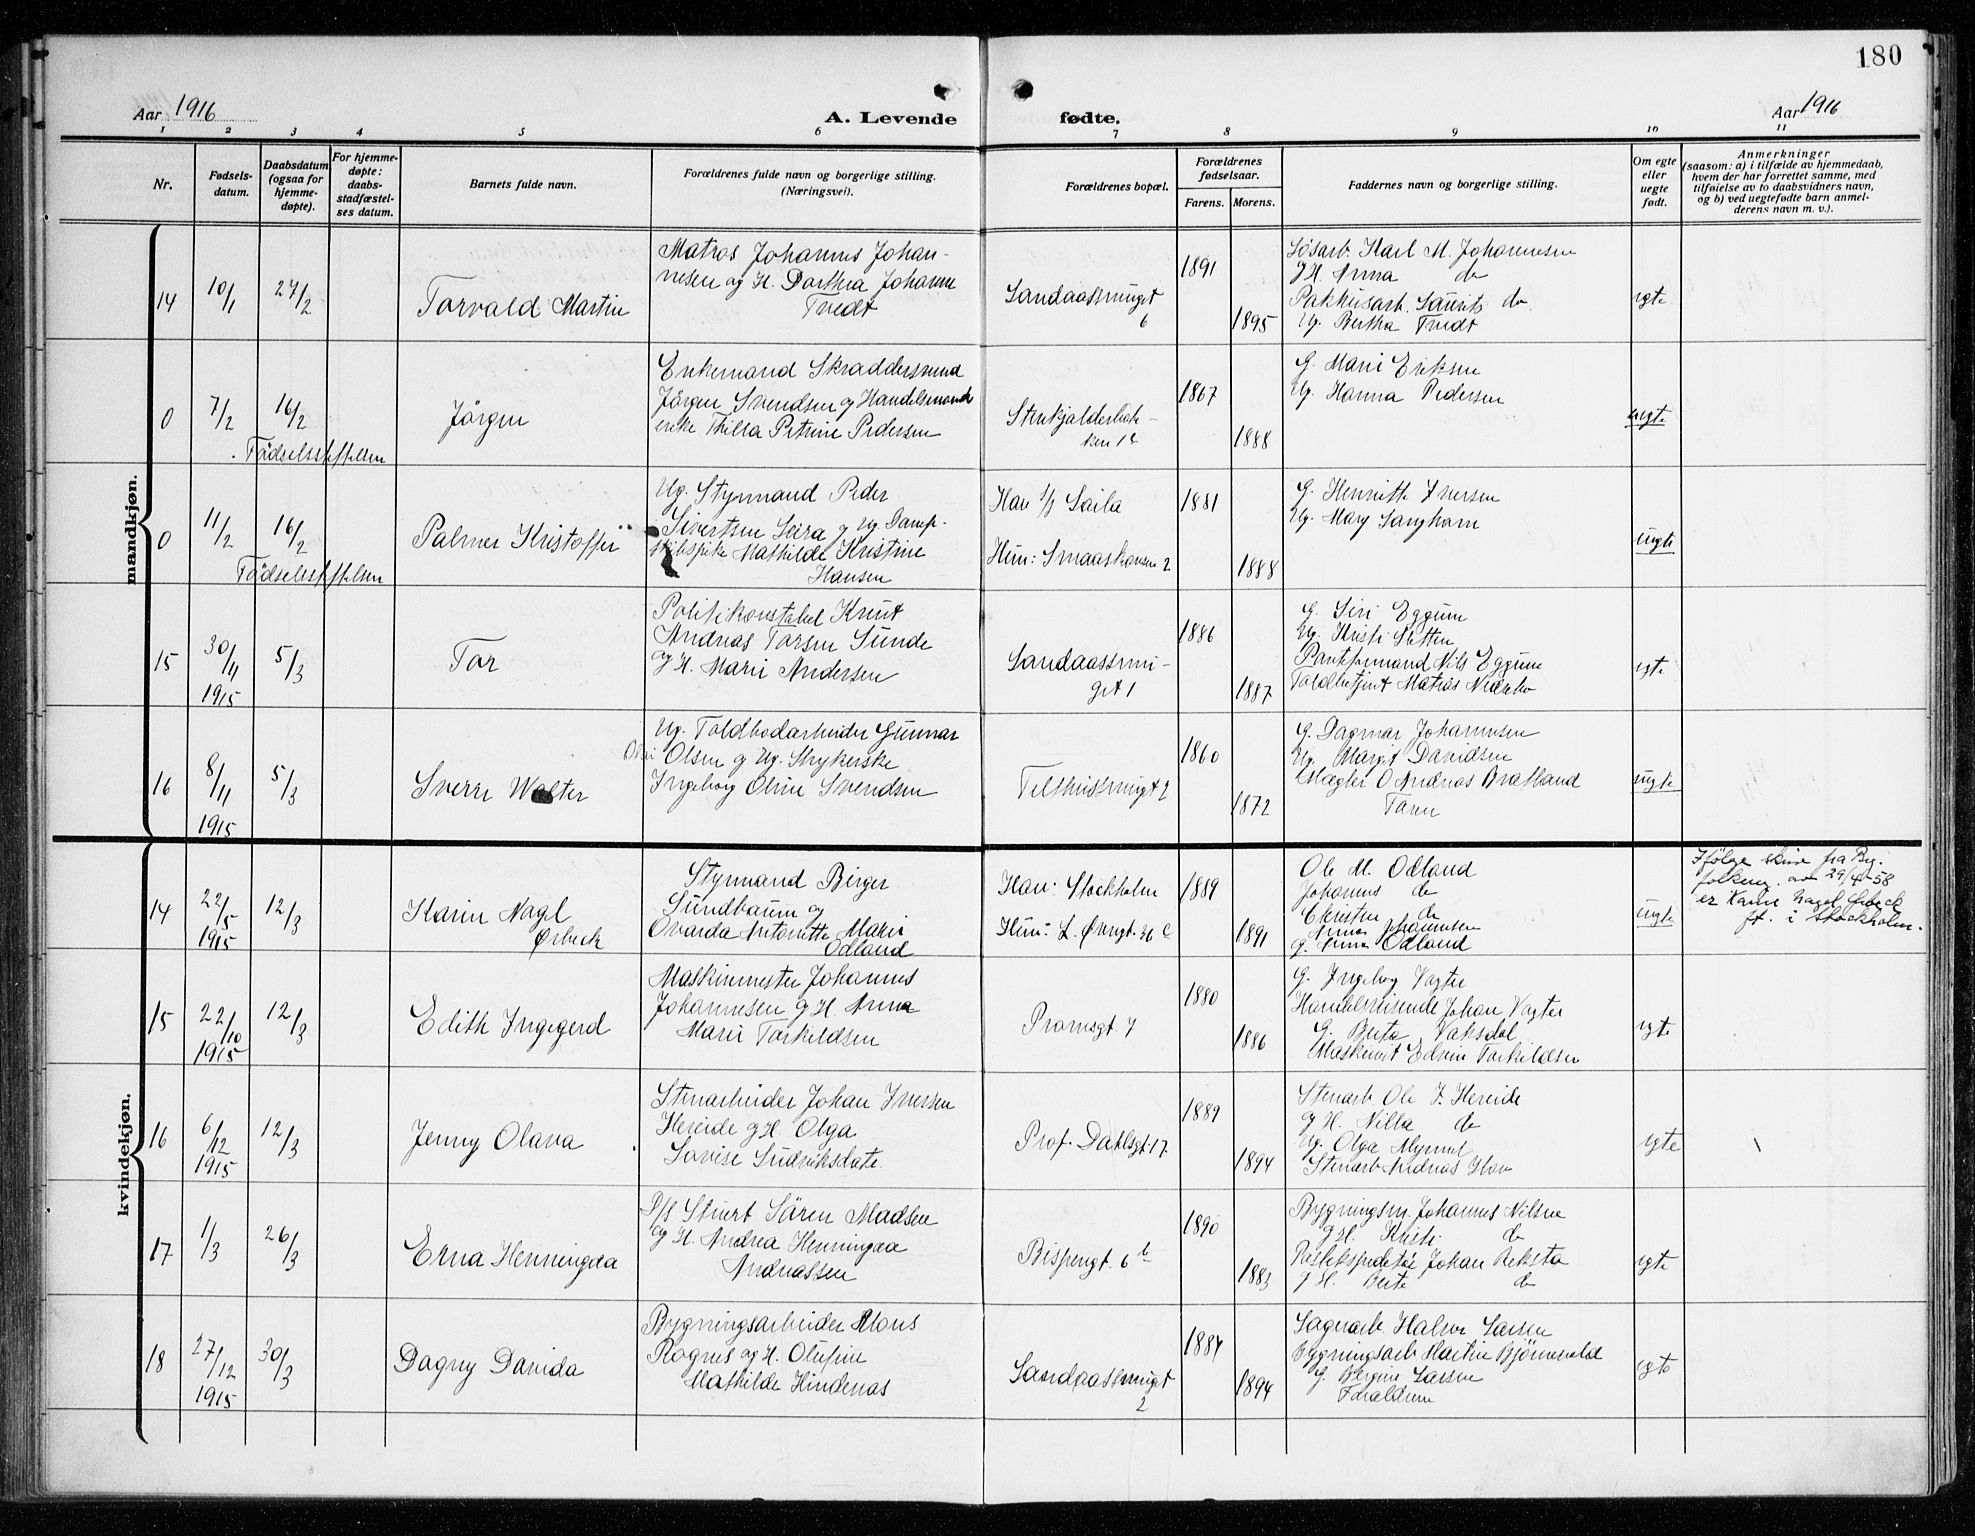 180
Aar 1916
A. Levende
fødte.
Aar 1916
1 2 3 4 5 6 7 8 9 10 11
Nr.
Fødsels-
datum.
Daabsdatum
(ogsaa for
hjemme-
døpte).
For hjemme-
døpte:
daabs-
stadfæstel-
ses datum.
Barnets fulde navn.
Forældrenes fulde navn og borgerlige stilling.
(Næringsvei).
Forældrenes bopæl.
Forældrenes
fødselsaar.
Farens. Morens.
Faddernes navn og borgerlige stilling.
Om egte
eller
uegte
født.
Anmerkninger
(saasom: a) i tilfælde av hjemmedaab,
hvem der har forrettet samme, med
tilføielse av to daabsvidners navn,
og b) ved uegtefødte barn anmel-
derens navn m. v.).
mandkjøn.
14
10/1
27/2
Torvald Martin
Matros Johannes Johan-
nesen og H. Dorthea Johanne
Tvedt
Sandaassmuget
6
1891
1895
Søsarb. Karl M. Johannesen
g H. Anna do
Pakhusarb. Laurits do
Ug. Bertha Tvedt
egte
0
7/2
16/2
Fødselsstiftelsen
Jörgen
Enkemand Skraddersvend
Jörgen Svendsen g Handelsmand
enke Thilla Petrine Pedersen
Stenkjælderbak-
ken 1
1867
1888
G. Marie Eriksen
Ug. Hanna Pedersen
uegte
0
11/2
16/2
Fødselsstiftelsen
Palmer Kristoffer
Ug. Styrmand Peder
Sivertsen Leira g Ug. Damp-
skibspike Mathilde Kristine
Hansen
Han s/s Laila
Hun: Smaaskansen 2
1881
1888
G. Henriette Iversen
Ug. Mary Langhorn
uegte
15
30/11
1915
5/3
Tor
Politikonstabel Knut
Andreas Torsen Sunde
og H. Marie Andersen
Sandaassmu-
get 1
1886
1887
G. Siri Eggum
Ug. Kristi Sletten
Nils Eggum
Toldbetjent Matias
egte
16
8/11
1915
5/3
Sverre Walter
Ug. Toldbodarbeider Gunnar
Olsen g Ug. Strykerske
Ingeborg Oline Svendsen
Telthussmuget 2
1860
1872
G. Dagmar Johannesen
Ug. Margit Davidsen
Mægler O Andreas Bratland
Faren
uegte
kvindekjøn.
14
22/5
1915
12/3
Karin Nagl
Ørbeck
Styrmand Birger
Sundbaum og
Ovarda Antonette Marie
Odland
Han: Stockholm
Hun: L. Øvregt. 36 c
1889
1891
Ole M. Odland
Johannes do
Christen do
Anna Johannesen
G. Anna Odland
uegte
Ifölge skriv fra By.
folkereg. av 29/4-58
er Karin Nagel Ørbeck
ft. i Stockholm.
15
22/10
1915
12/3
Edith Ingegerd
Maskinmester Johannes
Johannesen g H. Anna
Marie Torkildsen
Pramsgt 7
1880
1886
G. Ingeborg Vagter
Handelsreisende Johan Vagter
G. Berta Vaksdal
Maskinist Edvin Torkildsen
egte
16
6/12
1915
12/3
Jenny Olava
Stenarbeider Johan Iversen
Hereide g H. Olga
Lovise
Prof. Dahlsgt. 17
1889
1894
Stenarb. Ole I. Hereide
g H. Nilla do
Ug. Olga Myrmel
Stenarb Andreas
egte
17
1/3
26/3
Erna Henningaa
D/S Stuert Sören Madsen
og H. Andrea Henningaa
Andreassen
Bispengt. 6 b
1890
1883
Bygningsm. Johannes Nilsen
g H. Kristi do
Johan Reksta
g H. Berte do
egte
18
27/12
1915
30/3
Dagny Davida
Bygningsarbeider Mons
Rognes og H. Olufine
Mathilde Hindenas
Sandaassmuget
2
1887
1894
Lagerarb. Halvor Larsen
Bygningsarb Martin Bjørnevold
G. Bergine Larsen
Forældrene
egte